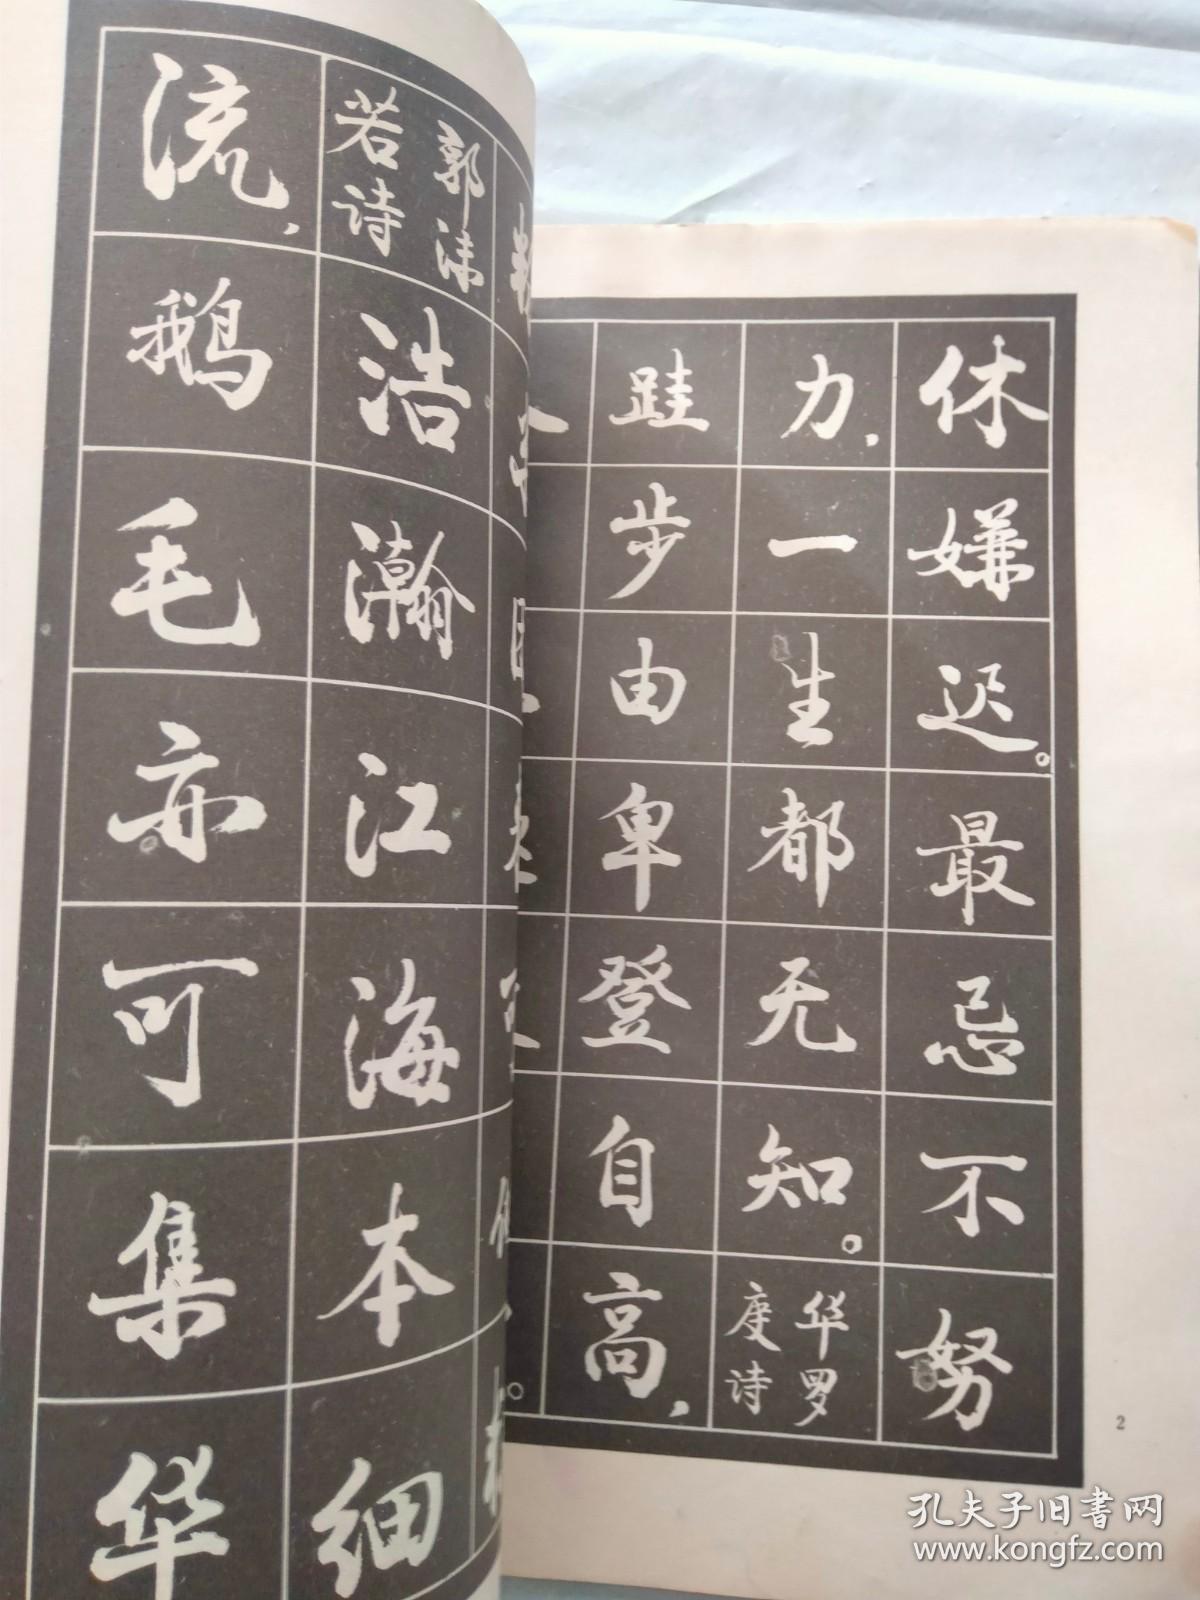 休嫌迟。最忌不努
力,一生都无知。华罗庚诗
跬步由卑登自高,
2
郭沫若诗 浩瀚江海本细
流,鹅毛亦可集华
孔夫子旧书网
www.kongfz.com